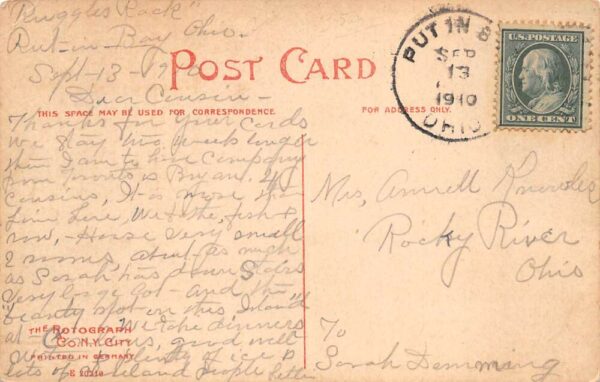 "Ruggles Rock"
Put-in-Bay Ohio-
Sept-13-19
Dear Cousin-
Thanks for your Cards
We Stay two weeks longer
then I am to have Company
from Toronto
Cousins, It is more than
fine here, We fish &
row,- House Very small
2 rooms about as much
as Sarah has down Stairs
Very large lot- and the
"beauty spot on this Island"
We take dinners
good well
plenty of ice
lots of Cleveland people
letter
POST CARD
THIS SPACE MAY BE USED FOR CORRESPONDENCE.
FOR ADDRESS ONLY.
PUT IN B
SEP
13
1910
OHIO
U.S. POSTAGE
ONE CENT
Mrs,
Rocky River
Ohio
To
Sarah Demming
THE ROTOGRAPH
CO. N.Y. CITY
PRINTED IN GERMANY